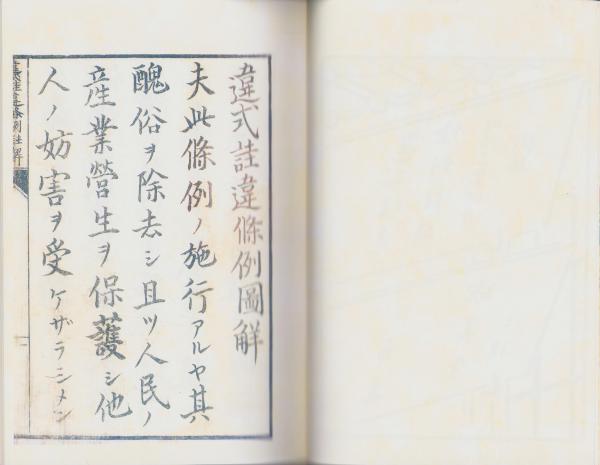 違式詿違條例圖解
夫此條例ノ施行アルヤ其
醜俗ヲ除去シ且ツ人民ノ
産業營生ヲ保護シ他
人ノ妨害ヲ受ケザラシメン